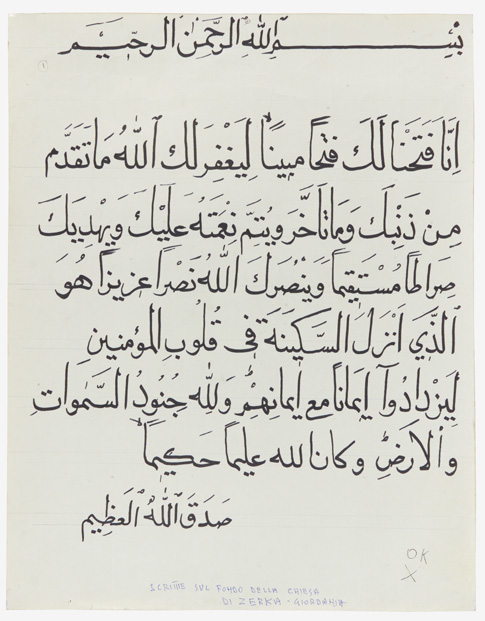 بِسْمِ اللهِ الرَّحْمٰنِ الرَّحِيْمِ
١
اِنَّا فَتَحْنَا لَكَ فَتْحًا مُبِينًا لِيَغْفِرَ لَكَ ٱللّٰهُ مَا تَقَدَّم
مِنْ ذَنْبِكَ وَمَا تَأَخَّرَ وَيُتِمَّ نِعْمَتَهُ عَلَيْكَ وَيَهْدِيَكَ
صِرَاطًا مُسْتَقِيمًا وَيَنْصُرَكَ اللّٰهُ نَصْرًا عَزِيزًا هُوَ
ٱلَّذِي اَنْزَلَ السَّكِينَةَ فِى قُلُوبِ الْمُؤْمِنِينَ
لِيَزْدَادُوآ اِيمَانًا مَع اِيمَانِهِمْ وَلِلّٰهِ جُنُودُ السَّمٰوَاتِ
وَٱلْاَرْضِ وَكَانَ الله عَلِيمًا حَكِيمًا
صَدَقَ ٱللّٰهُ ٱلْعَظِيم
OK
X
SCRITTE SUL FONDO DELLA CHIESA
DI ZERKA - GIORDANIA